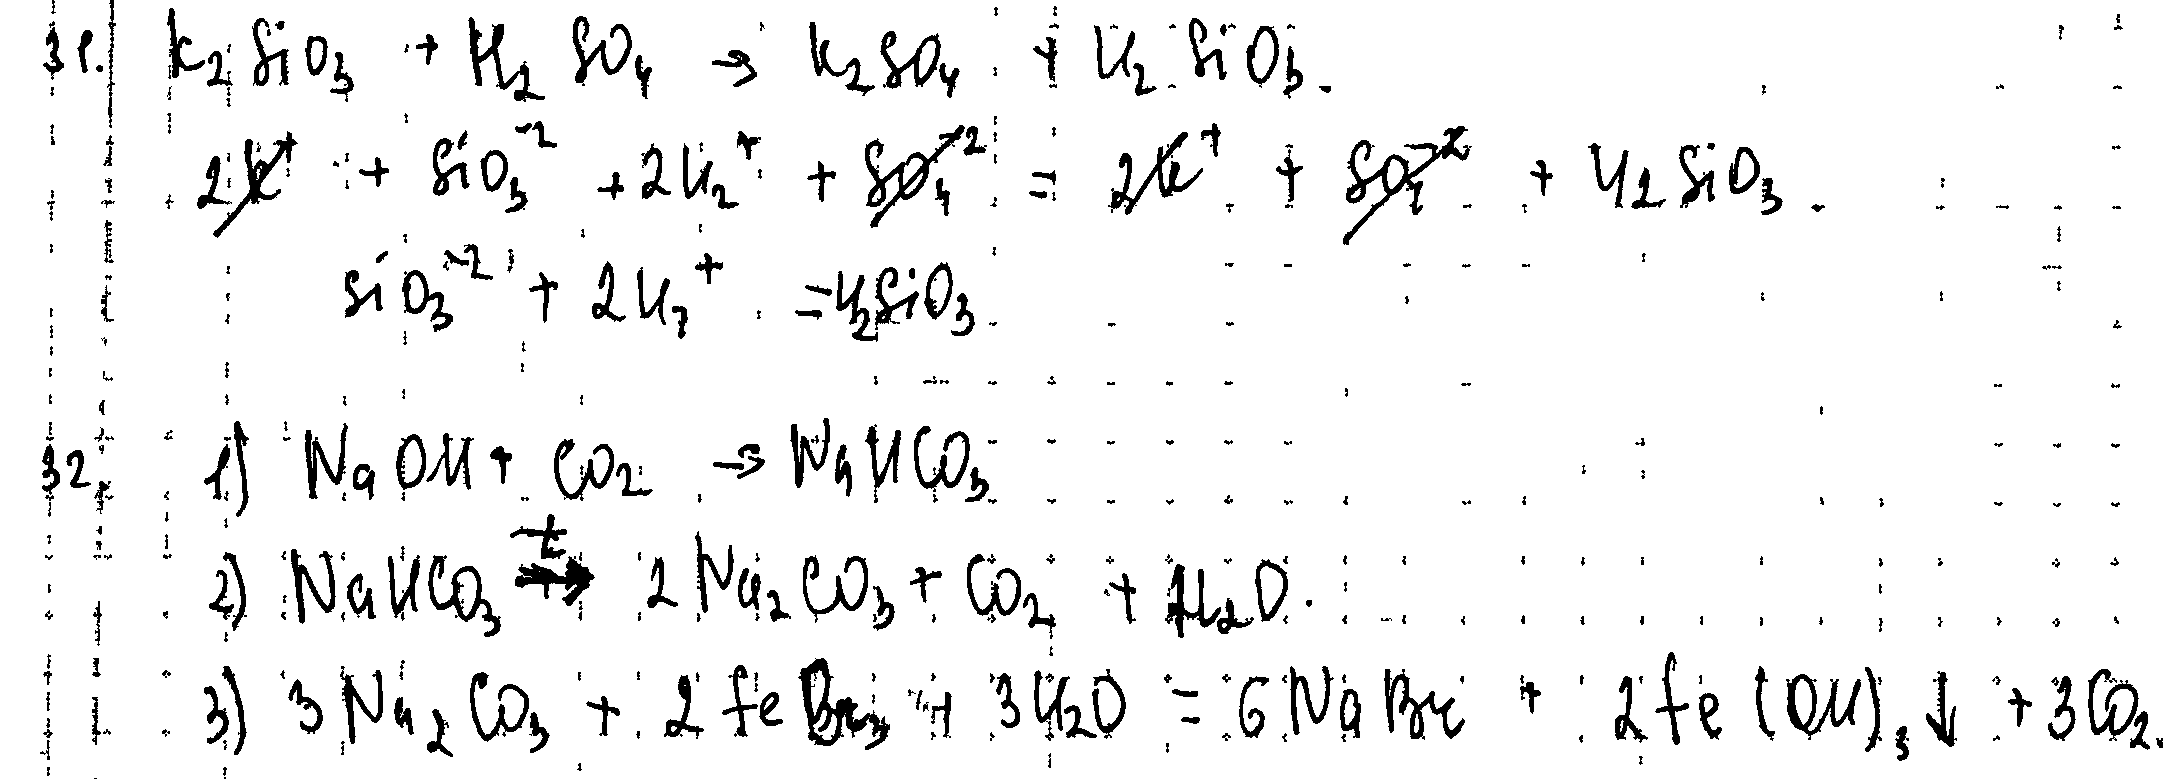 31. K₂SiO₃ + H₂SO₄ → K₂SO₄ + H₂SiO₃.
2K⁺ + SiO₃⁻² + 2H₂⁺ + SO₄⁻² = 2K⁺ + SO₄⁻² + H₂SiO₃.
SiO₃⁻² + 2H₂⁺ = H₂SiO₃
32. 1) NaOH + CO₂ → NaHCO₃
2) NaHCO₃ →ᵗ 2Na₂CO₃ + CO₂ + H₂O.
3) 3Na₂CO₃ + 2FeBr₃ + 3H₂O = 6NaBr + 2Fe(OH)₃↓ + 3CO₂.